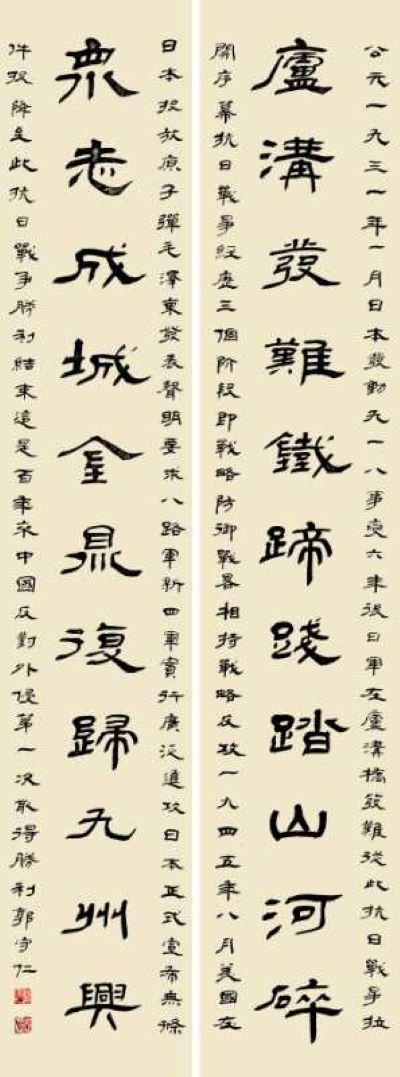 公元一九三一年一月日本發動九一八事变六年後日軍在盧溝橋發難從此抗日戰爭拉
盧溝發難鐵蹄踐踏山河碎
開序幕抗日戰爭經歷三個阶段即戰略防御戰畧相持戰略反攻一九四五年八月美國在
日本投放原子彈毛澤東發表聲明要求八路軍新四軍實行廣泛進攻日本正式宣布無條
眾志成城金鼎復歸九州興
件投降至此抗日戰爭勝利結束這是百年來中國反對外侵第一次取得勝利郭守仁